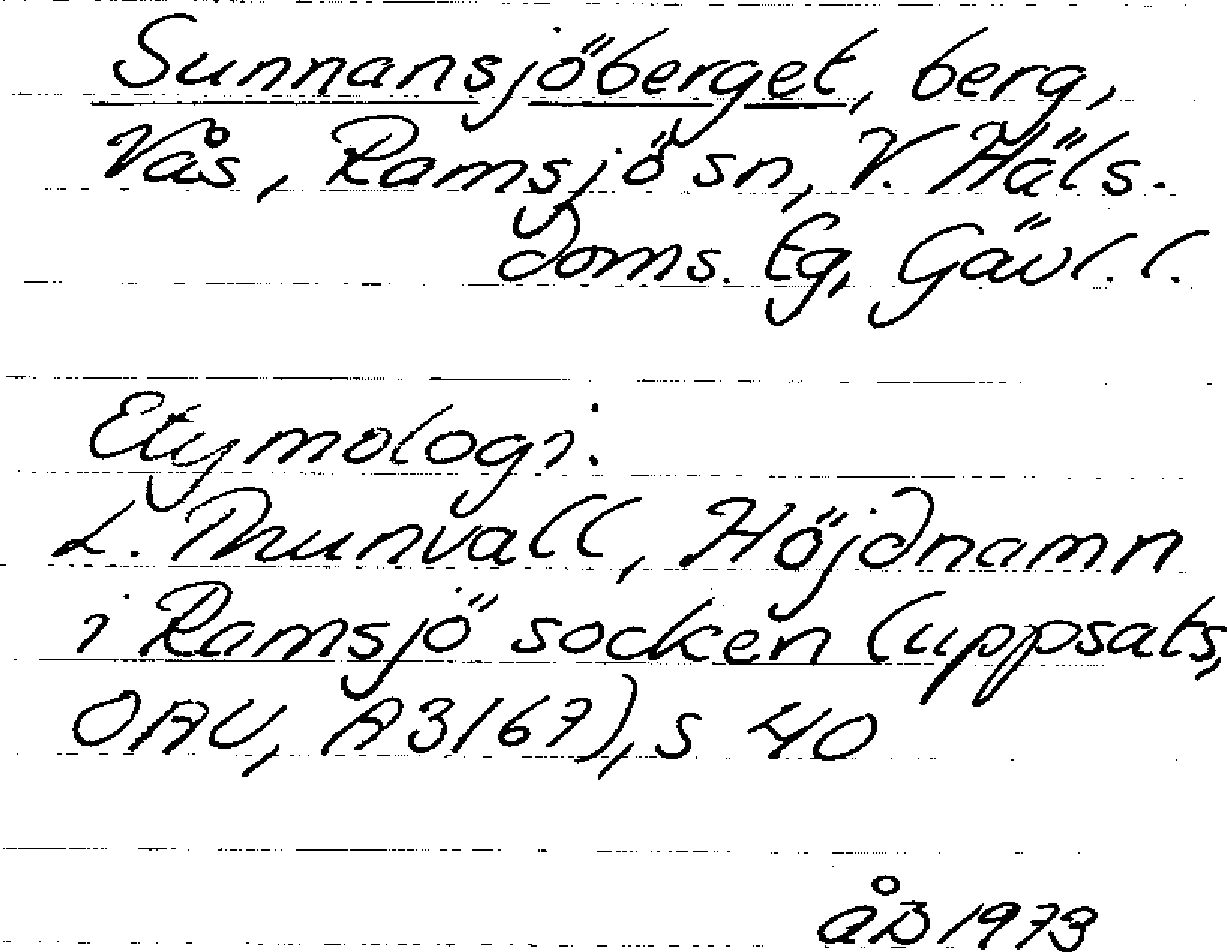 Sunnansjöberget, berg,
Vås, Ramsjö sn, V. Häls.
doms. tg, Gävl. l.
Etymologi:
L. Thunvall, Höjdnamn
i Ramsjö socken (uppsats,
OAU, A3167), s 40
ÅB 1973